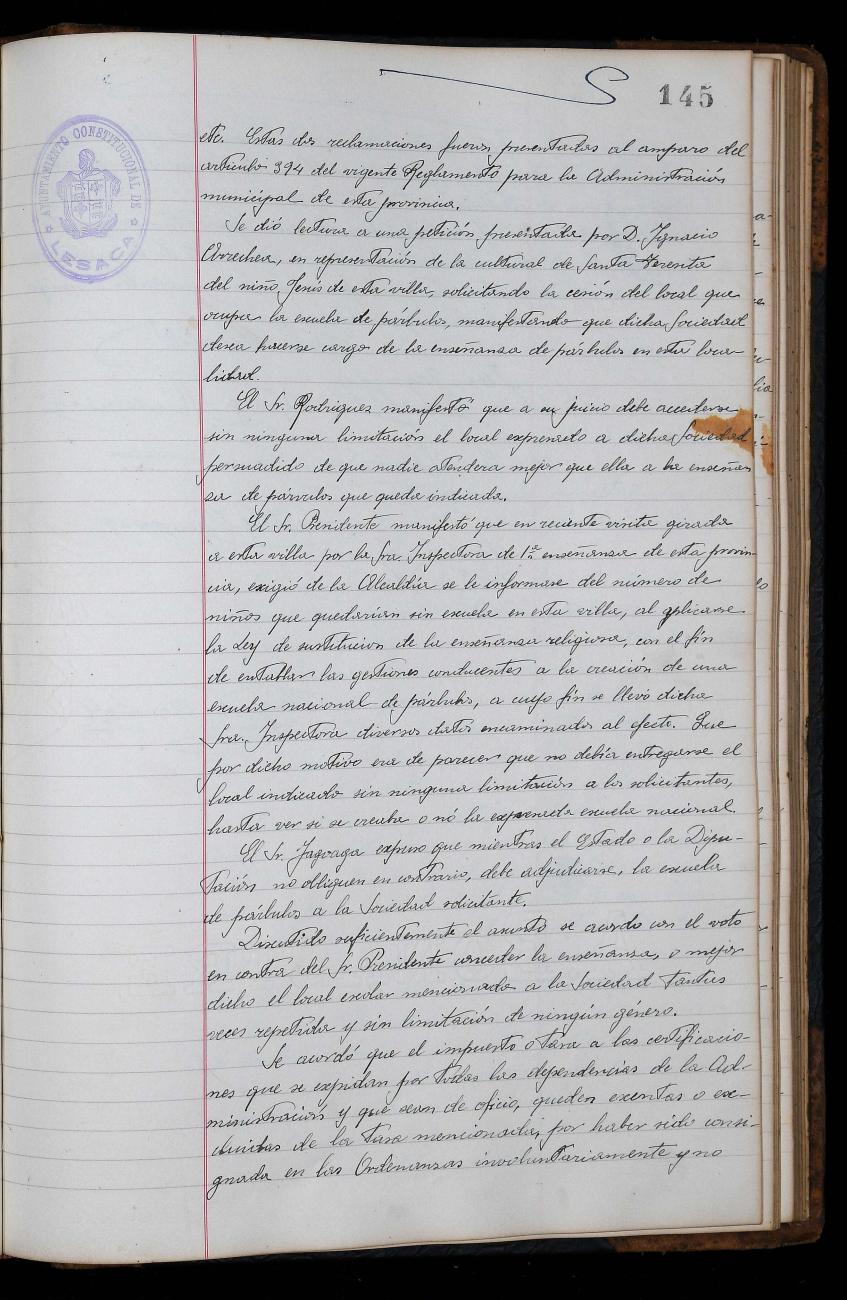 145
AYUNTAMIENTO CONSTITUCIONAL DE
LESACA
etc. Estas dos reclamaciones fueron presentadas al amparo del
artículo 394 del vigente Reglamento para la Administración
municipal de esta provincia.
Se dió lectura a una petición presentada por D. Ignacio
Arrechea, en representación de la cultural de Santa Teresita
del niño Jesús de esta villa, solicitando la cesión del local que
ocupa la escuela de párbulos, manifestando que dicha Sociedad
desea hacerse cargo de la enseñanza de párbulos en esta loca-
lidad.
El Sr. Rodriguez manifestó que a su juicio debe accederse
sin ninguna limitación el local expresado a dicha Sociedad
persuadido de que nadie atendera mejor que ella a la enseñan
za de párvulos que queda indicada.
El Sr. Presidente manifestó que en reciente visita girada
a esta villa por la Sra. Inspectora de 1ª enseñanza de esta provin-
cia, exigió de la Alcaldía se le informase del número de
niños que quedarían sin escuela en esta villa, al aplicarse
la Ley de sustitucion de la enseñanza religiosa, con el fín
de entablar las gestiones conducentes a la creación de una
escuela nacional de párbulos, a cuyo fín se llevó dicha
Sra. Inspectora diversos datos encaminados al efecto. Que
por dicho motivo era de parecer que no debía entregarse el
local indicado sin ninguna limitación a los solicitantes,
hasta ver si se creaba o nó la expresada escuela nacional.
El Sr. Jagoaga expuso que mientras el Estado o la Dipu-
tación no obliguen en contrario, debe adjudicarse, la escuela
de párbulos a la Sociedad solicitante.
Discutido suficientemente el asunto se acordo con el voto
en contra del Sr. Presidente conceder la enseñanza, o mejor
dicho el local escolar mencionado a la Sociedad tantas
veces repetida y sin limitación de ningún género.
Se acordó que el impuesto o tasa a las certificacio-
nes que se expidan por todas las dependencias de la Ad-
ministración y que sean de oficio, queden exentas o ex-
cluidas de la tasa mencionada, por haber sido consi-
gnada en las Ordenanzas involuntariamente y no